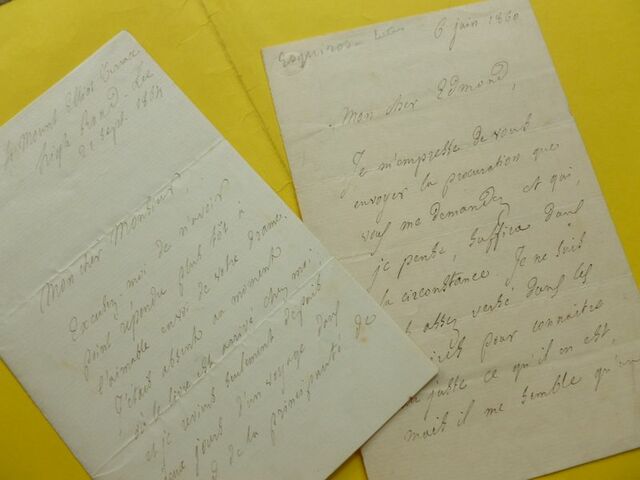 Mount Elliot Terrace
Lee
21 sept. 1864
Mon cher Monsieur,
Excusez moi de n'avoir
point répondu plus tôt à
l'aimable envoi de votre drame.
J'étais absent au moment
où le livre est arrivé chez moi,
et je reviens seulement depuis
jours d'un voyage dans
de la principauté de
Esquiros
6 juin 1860
Mon cher Edmond,
Je m'empresse de vous
envoyer la procuration que
vous me demandez et qui,
je pense, suffira dans
la circonstance. Je ne suis
assez versé dans les
pour connaître
juste ce qu'il en est,
mais il me semble qu'un